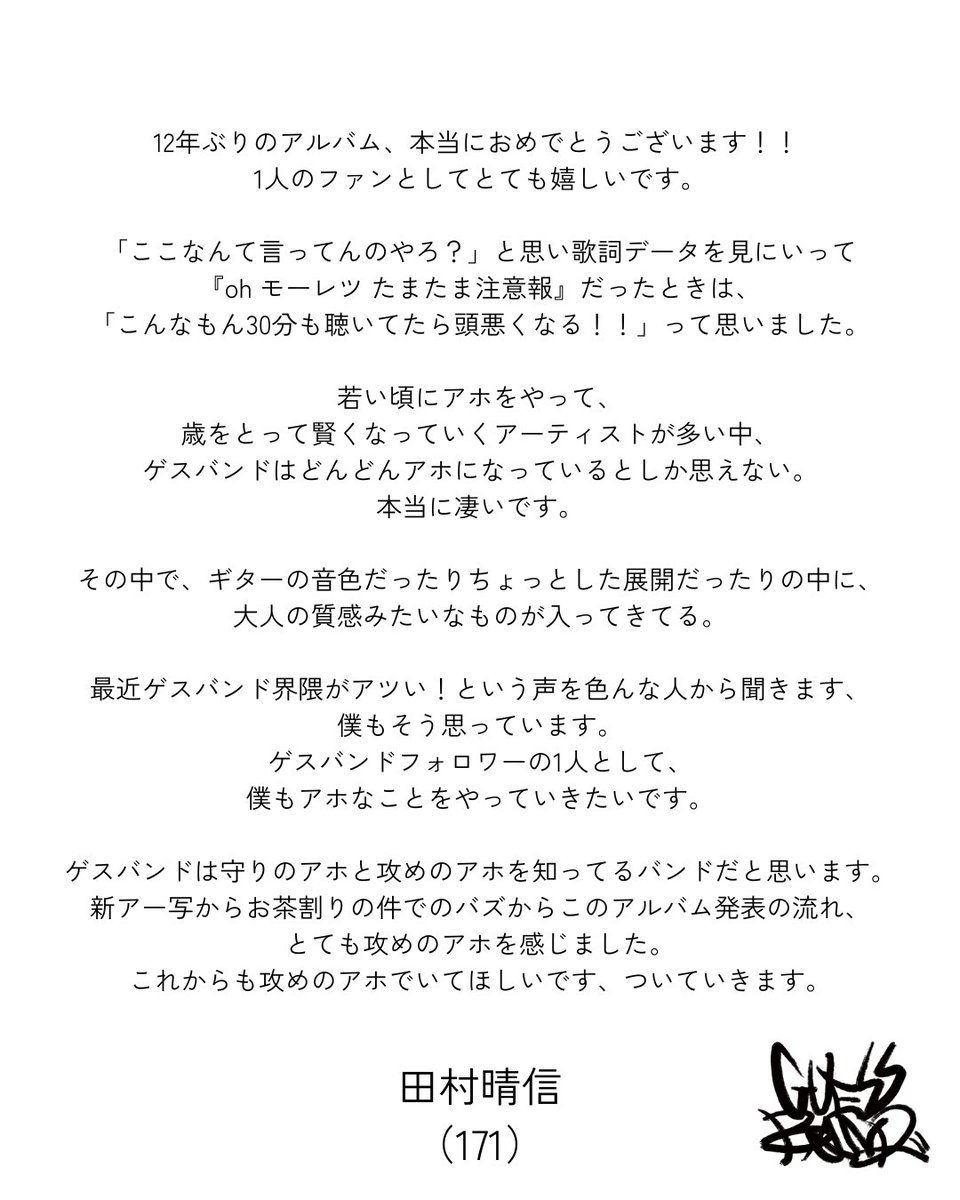 12年ぶりのアルバム、本当におめでとうございます！！
1人のファンとしてとても嬉しいです。
「ここなんて言ってんのやろ？」と思い歌詞データを見にいって
『oh モーレツ たまたま注意報』だったときは、
「こんなもん30分も聴いてたら頭悪くなる！！」って思いました。
若い頃にアホをやって、
歳をとって賢くなっていくアーティストが多い中、
ゲスバンドはどんどんアホになっているとしか思えない。
本当に凄いです。
その中で、ギターの音色だったりちょっとした展開だったりの中に、
大人の質感みたいなものが入ってきてる。
最近ゲスバンド界隈がアツい！という声を色んな人から聞きます、
僕もそう思っています。
ゲスバンドフォロワーの1人として、
僕もアホなことをやっていきたいです。
ゲスバンドは守りのアホと攻めのアホを知ってるバンドだと思います。
新アー写からお茶割りの件でのバズからこのアルバム発表の流れ、
とても攻めのアホを感じました。
これからも攻めのアホでいてほしいです、ついていきます。
田村晴信
（171）
GUESS
BAND